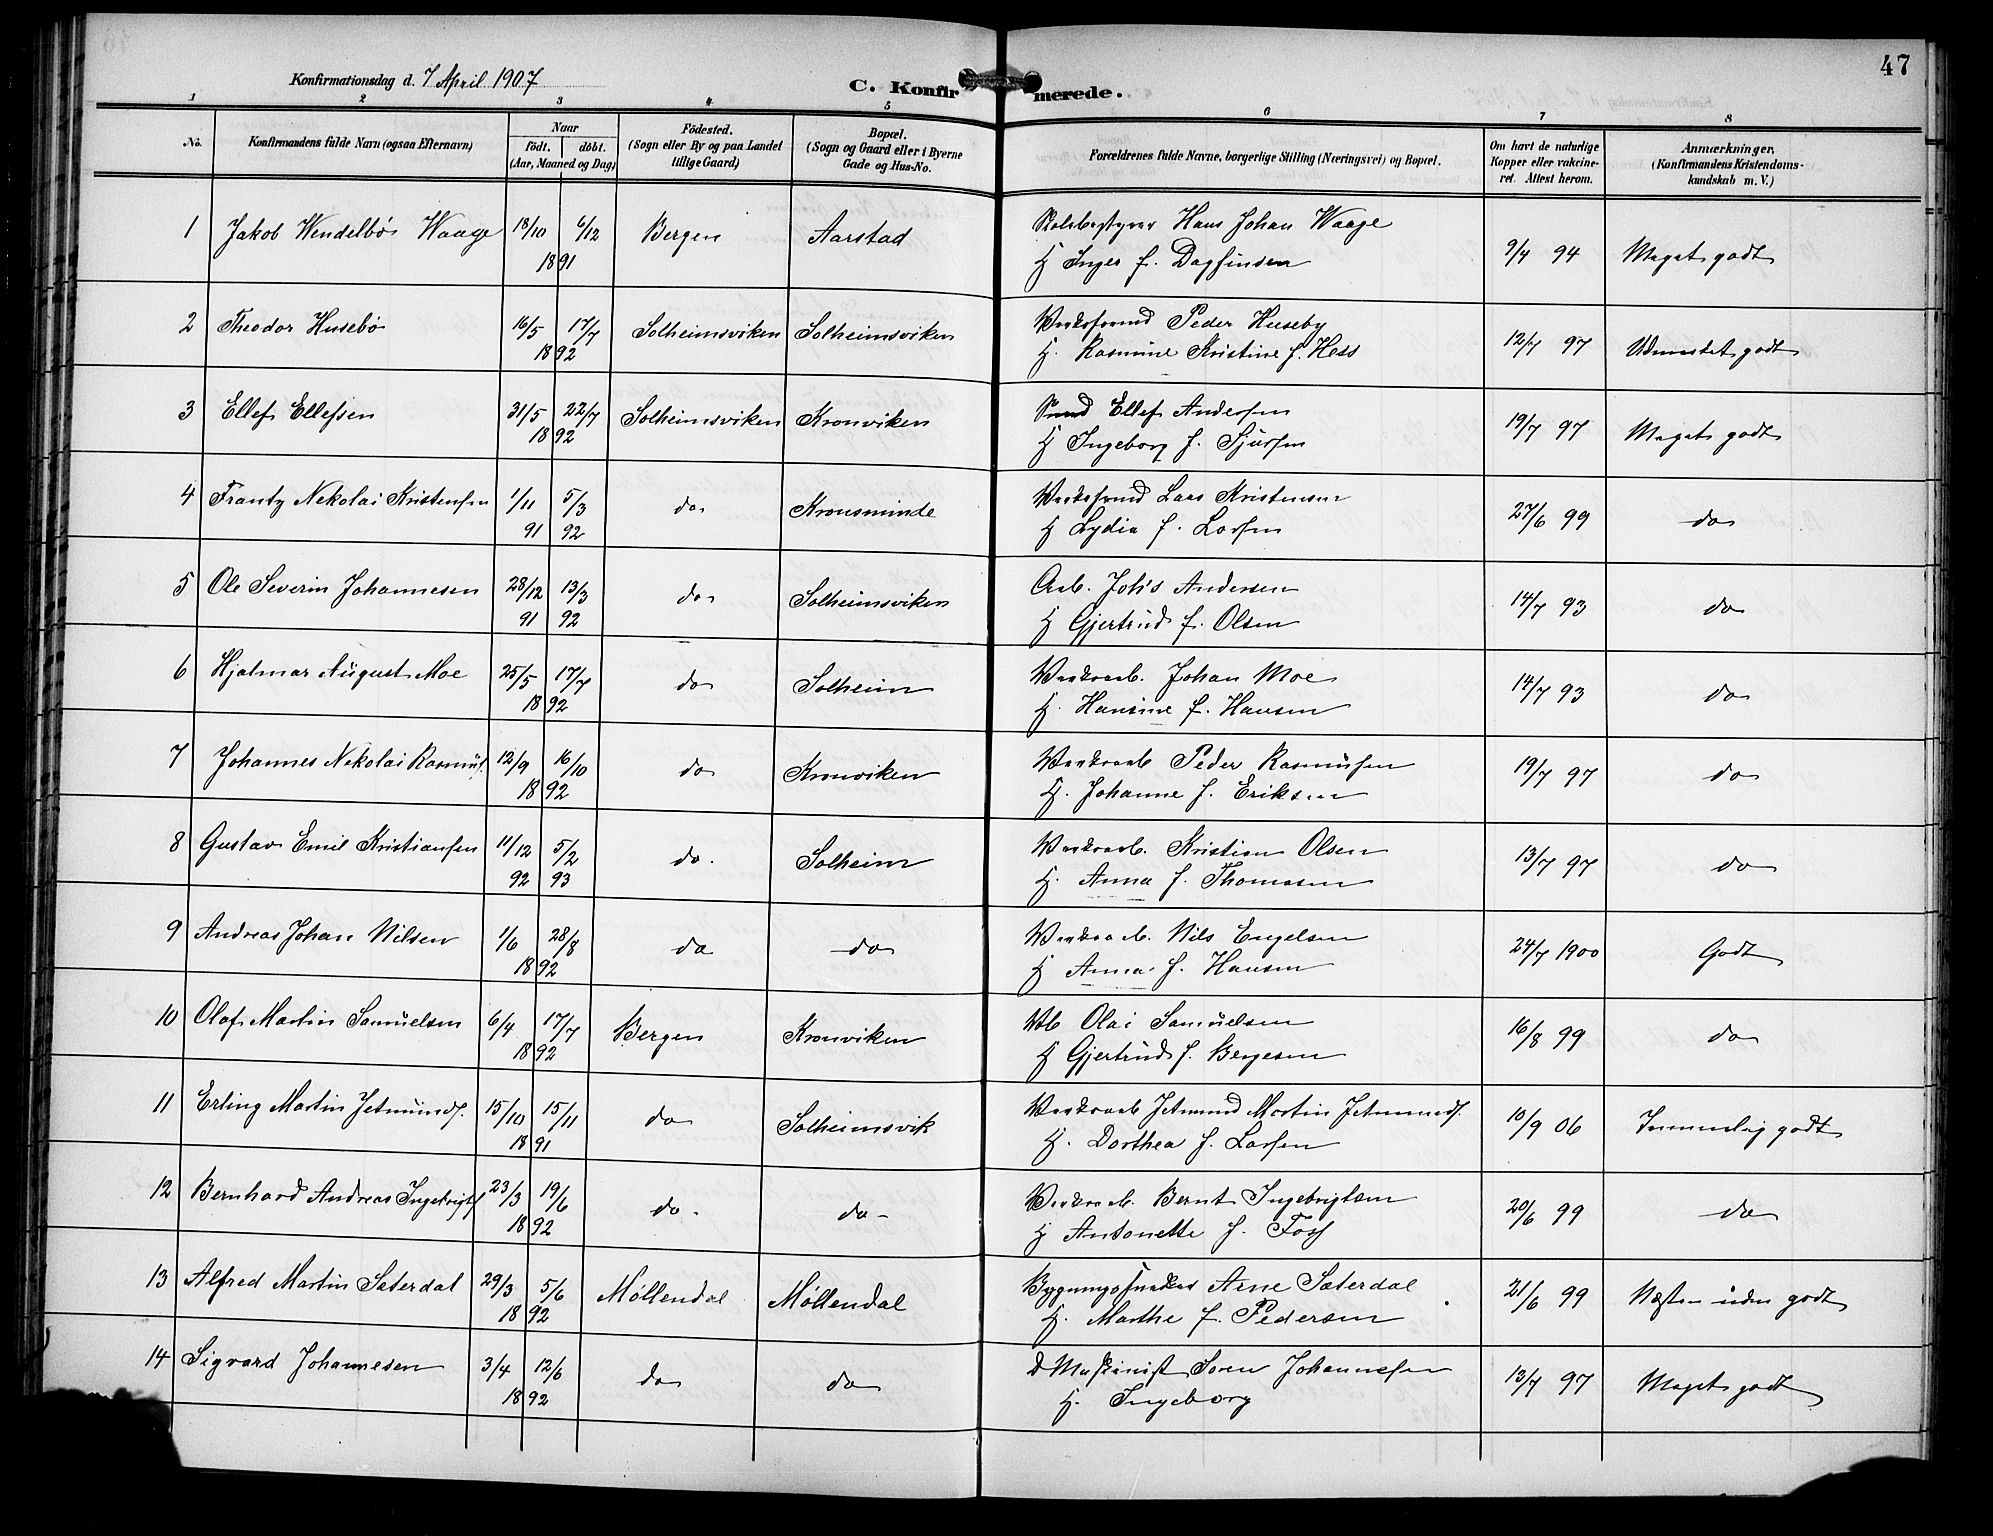 47
Konfirmationsdag d. 7 April 1907
C. Konfirmerede.
1 2 3 4 5 6 7 8
No.
Konfirmandens fulde Navn (ogsaa Efternavn)
Naar
født. døbt.
(Aar, Maaned og Dag)
Fødested.
(Sogn eller By og paa Landet
tillige Gaard)
Bopæl.
(Sogn og Gaard eller i Byerne
Gade og Hus-No.
Forældrenes fulde Navne, borgerlige Stilling (Næringsvei) og Bopæl.
Om havt de naturlige
Kopper eller vakcine-
ret. Attest herom.
Anmærkninger,
(Konfirmandens Kristendoms-
kundskab m. V.)
1 Jakob Wendelbo Waage 18/10 6/12 Bergen Aarstad Skolebestyrer Hans Johan Waage 9/4 94 Meget godt
1891 H Inger f. Dagfinsen
2 Theodor Husebø 16/5 17/7 Solheimsviken Solheimsviken Peder Huseby 12/7 97 Udmerket godt
1892 H. Rasmine Kristine f. Hess
3 Ellef Ellefsen 31/5 22/7 Solheimsviken Kronviken Smed Ellef Andersen 19/7 97 Meget godt
1892 H Ingeborg f. Sjursen
4 Frantz Nekolai Kristensen 1/11 5/3 do Kronsminde Lars Kristensen 27/6 99 do
91 92 H Lydia f. Larsen
5 Ole Severin Johannesen 28/12 13/3 do Solheimsviken Arb. Johs Andersen 14/7 93 do
91 92 H Gjertrud f. Olsen
6 Hjalmar August Moe 25/5 17/7 do Solheim Verksarb. Johan Moe 14/7 93 do
1892 H. Hansine f. Hansen
7 Johannes Nekolai Rasmus. 12/9 16/10 do Kronviken Verksarb Peder Rasmusen 19/7 97 do
1892 H. Johanne f. Eriksen
8 Gustav Emil Kristiansen 11/12 5/2 do. Solheim Verksarb. Kristian Olsen 13/7 97 do
92 93 H. Anna f. Thomesen
9 Andreas Johan Nilsen 1/6 28/8 do do Verksarb. Nils Engelsen 24/7 1900 Godt
1892 H Anna f. Hansen
10 Olaf Martin Samuelsen 6/4 17/7 Bergen Kronviken Vb Olai Samuelsen 16/8 99 do
1892 H Gjertrud f. Bergesen
11 Erling Martin Jetmunds. 15/10 15/11 do Solheimsvik Verksarb Jetmund Martin Jetmunds. 10/9 06 Temmelig godt
1891 H. Dorthea f. Larsen
12 Bernhard Andreas Ingebrigts 23/3 19/6 do. do Verksarb. Bernt Ingebrigtsen 20/6 99 do
1892 H Antonette f. Foss
13 Alfred Martin Sæterdal 29/3 5/6 Møllendal Møllendal Bygningssnedker Arne Sæterdal 21/6 99 Næsten uden godt
1892 H. Marthe f. Pedersen
14 Sigvard Johannesen 3/4 12/6 do do d Maskinist Søren Johannesen 13/7 97 Meget godt
1892 H. Ingeborg